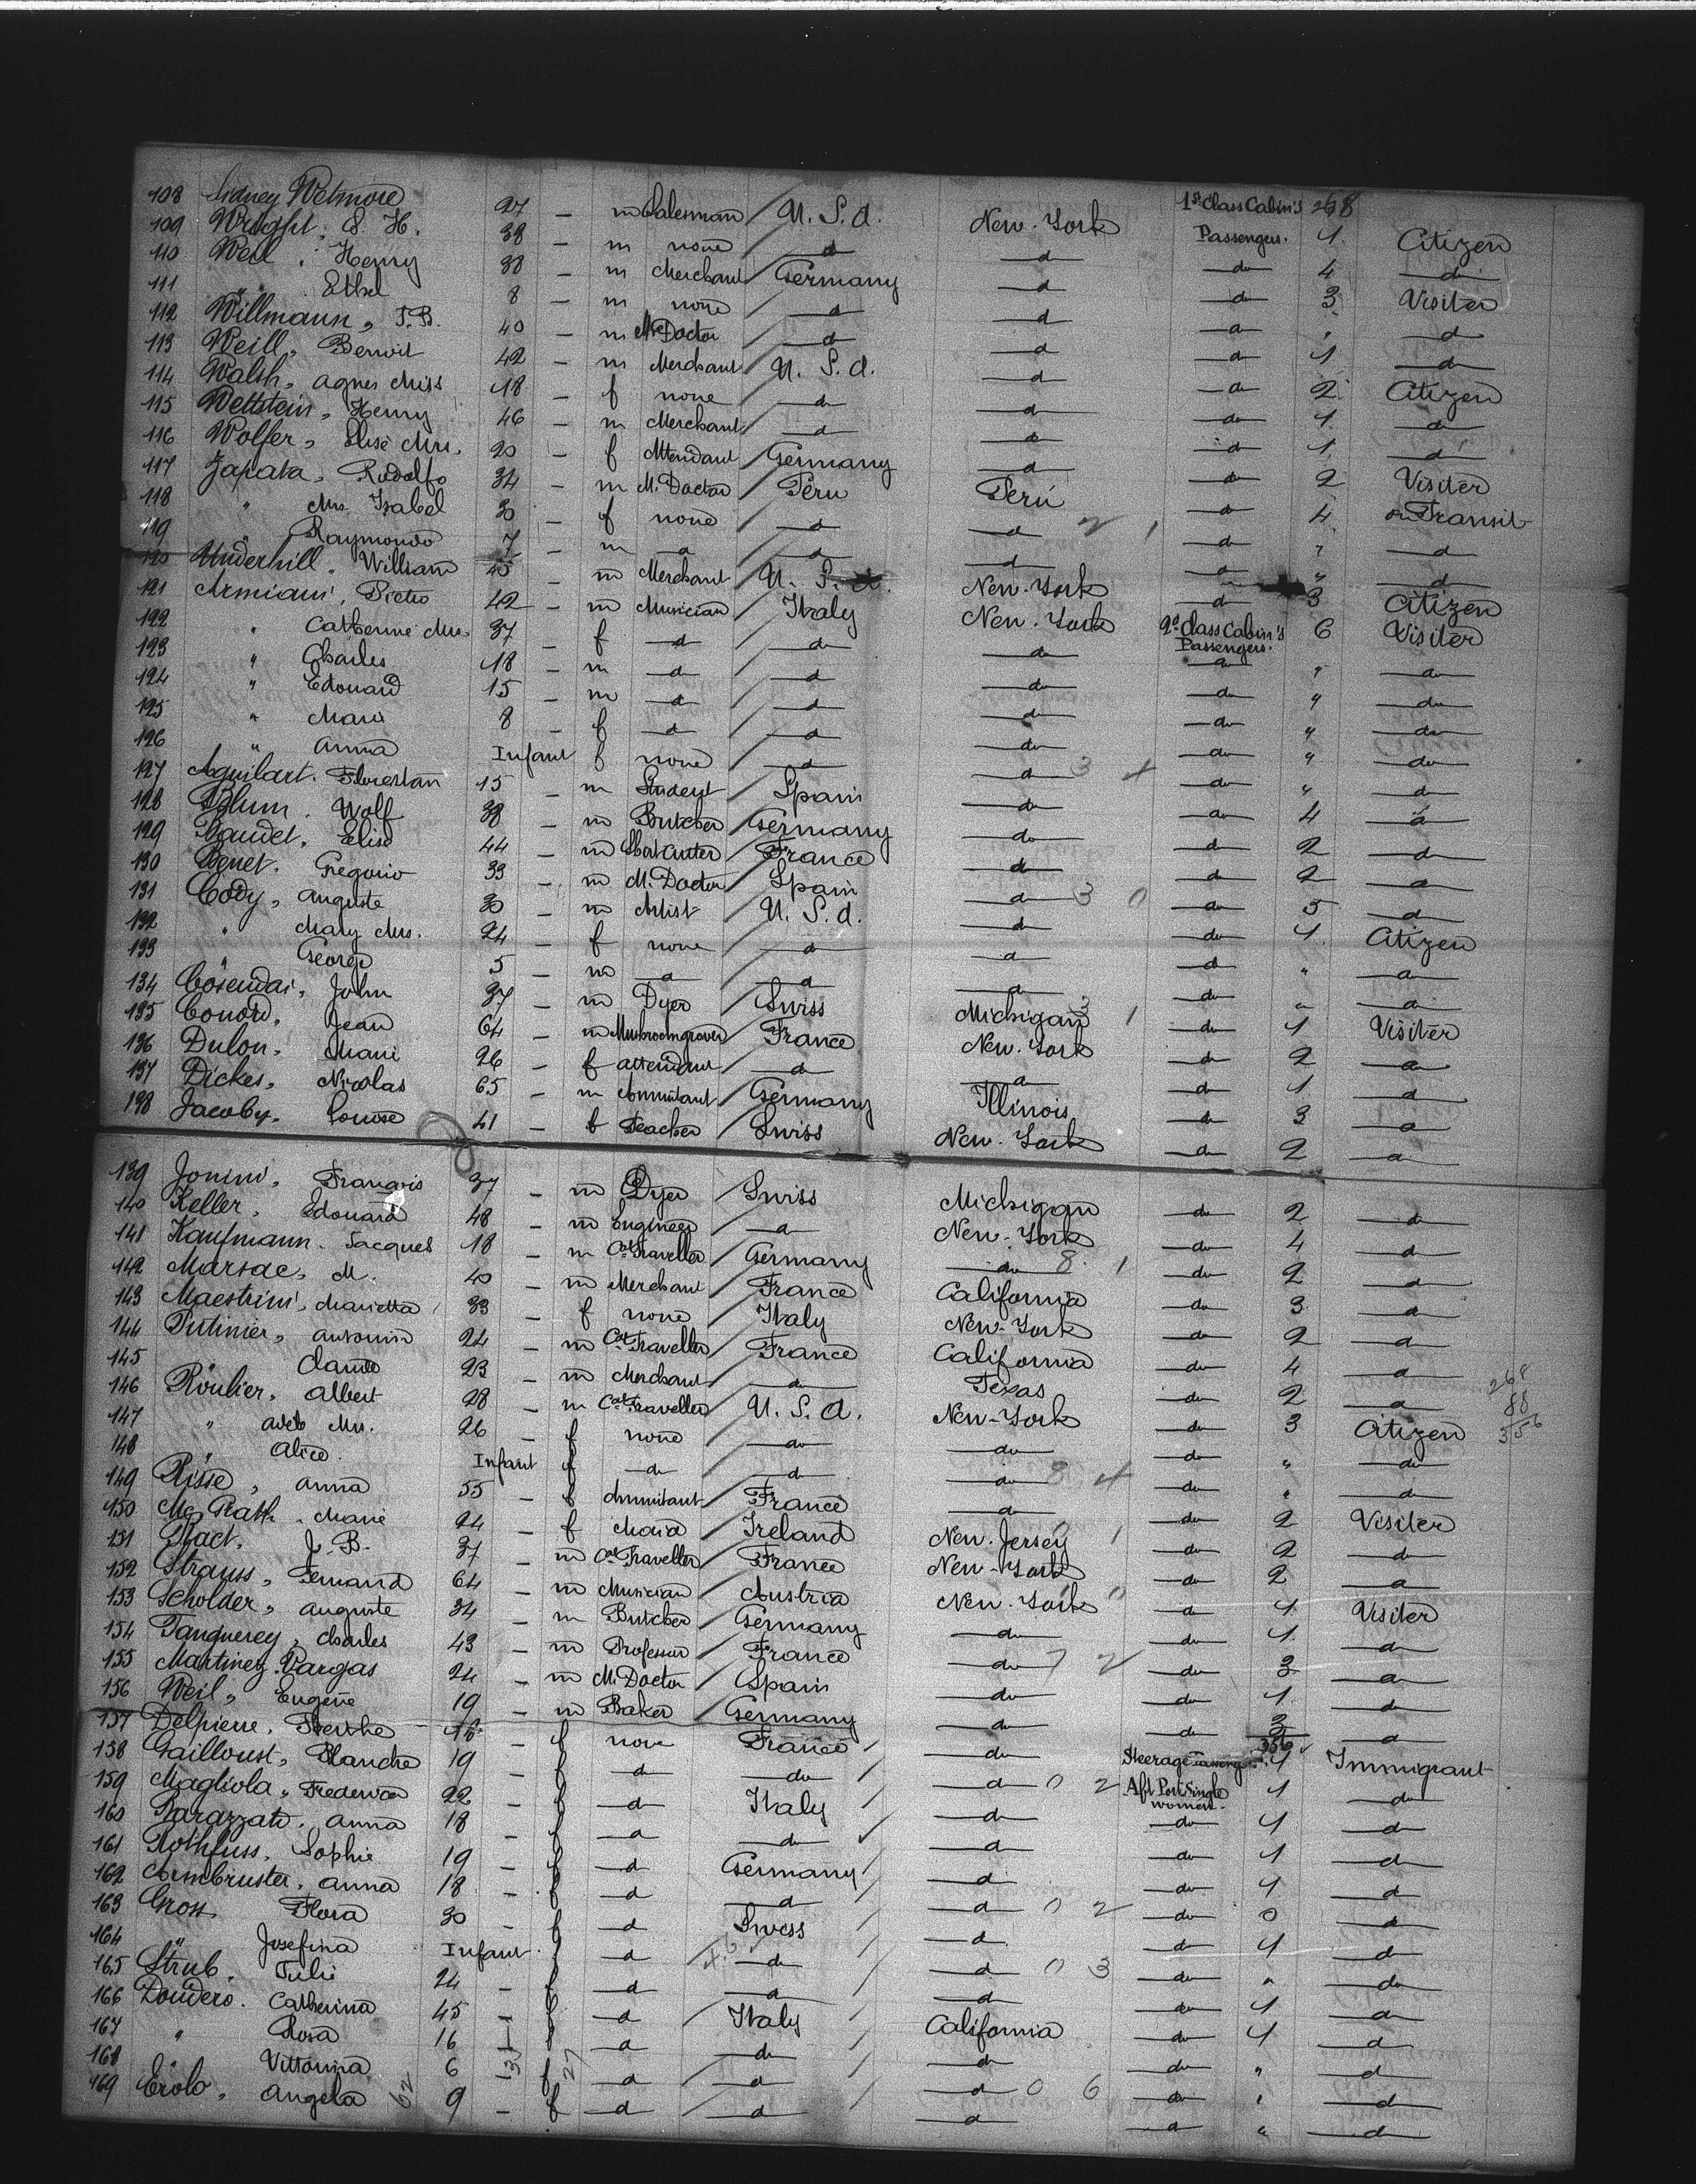 108 Sidney Wetmore 27 – m Salesman U.S.A. New-York 1st Class Cabin's Passengers. 268 1 Citizen
109 Wright, E. H. 38 – m none d d d 4 d
110 Weil, Henry 38 – m Merchant Germany d d 3 Visiter
111 " Ethel 8 – m none d d d " d
112 Willmann, T.B. 40 – m M. Doctor d d d 1 d
113 Weill, Benoit 42 – m Merchant U.S.A. d d 2 Citizen
114 Walsh, Agnes Miss 18 – f none d d d 1 d
115 Wettstein, Henry 46 – m Merchant d d d 1 d
116 Wolfer, Elise Mrs. 20 – f Attendant Germany d d 2 Visiter
117 Zapata, Rodolfo 34 – m M. Doctor Peru Peru d 4 on Transit
118 " Mrs. Isabel 30 – f none d d 2 1 d " d
119 " Raymondo 7 – m d d d d " d
120 Underhill, William 45 – m Merchant U.S.A. New-York d 3 Citizen
121 Armiani, Pietro 42 – m Musician Italy New-York 2d Class Cabin's Passengers. 6 Visiter
122 " Catherine Mrs. 37 – f d d d d " d
123 " Charles 18 – m d d d d " d
124 " Edouard 15 – m d d d d " d
125 " Marie 8 – f d d d d " d
126 " Anna Infant f none d d 3 4 d " d
127 Aguilart, Florestan 15 – m Student Spain d d 4 d
128 Blum, Wolf 38 – m Butcher Germany d d 2 d
129 Baudet, Elise 44 – m France d d 2 d
130 Benet, Gregorio 33 – m M. Doctor Spain d 3 0 d 5 d
131 Cody, Auguste 30 – m Artist U.S.A. d d 1 Citizen
132 " Mary Mrs. 24 – f none d d d " d
133 " George 5 – m d d d d " d
134 Cosendai, John 37 – m Dyer Swiss Michigan 3 1 d 1 Visiter
135 Conord, Jean 64 – m Mushroomgrover France New-York d 2 d
136 Dulon, Marie 26 – f Attendant d d d 1 d
137 Dickes, Nicolas 65 – m Annuitant Germany Illinois d 3 d
138 Jacoby, Louise 41 – f Teacher Swiss New-York d 2 d
139 Jonini, François 37 – m Dyer Swiss Michigan d 2 d
140 Keller, Edouard 48 – m Engineer d New-York d 4 d
141 Kaufmann, Jacques 18 – m Cal Traveller Germany d 8 1 d 2 d
142 Marsac, M. 40 – m Merchant France California d 3 d
143 Maestrini, Marietta 33 f none Italy New-York d 2 d
144 Putinier, Antonin 24 – m Cal Traveller France California d 4 d
145 " Claude 23 – m Merchant d Texas d 2 d 268
146 Roulier, Albert 28 – m Cal Traveller U.S.A. New-York d 3 Citizen 88 356
147 " Mrs. 26 – f none d d d " d
148 " Alice Infant f d d d 3 4 d " d
149 Risse, Anna 55 – f Annuitant France d d 2 Visiter
150 Mc Grath, Marie 24 – f Maid Ireland New-Jersey 1 d 2 d
151 J. B. 37 – m Cal Traveller France New-York d 2 d
152 Strauss, Fernand 64 – m Musician Austria New-York d 1 Visiter
153 Scholder, Auguste 34 – m Butcher Germany d d 1 d
154 Tanquerey, Charles 43 – m Professor France d 7 2 d 3 d
155 Martinez Vargas 24 – m M. Doctor Spain d d 1 d
156 Weil, Eugene 19 – m Baker Germany d d 3 d
157 Delpierre, Berthe – f none France d Steerage Passengers 356 1 Immigrant
158 Gailloust, Blanche 19 f d d d 0 2 Aft Port Single women. 1 d
159 Magliola, Frederica 22 f d Italy d d 1 d
160 Barazzato, Anna 18 – f d d d d 1 d
161 Rothfuss, Sophie 19 – f d Germany d d 1 d
162 Armbruster, Anna 18 – f d d d 0 2 d 0 d
163 Gross, Flora 30 – f d Swess d d 1 d
164 " Josefina Infant f d d d 0 3 d " d
165 Strub, Julie 24 – f d d d d 1 d
166 Doudero, Catherina 45 – f d Italy California d 1 d
167 " Rosa 16 f d d d d " d
168 " Vittorina 6 – f d d d 0 6 d " d
169 Erolo, Angela 62 9 – f d d d d " d